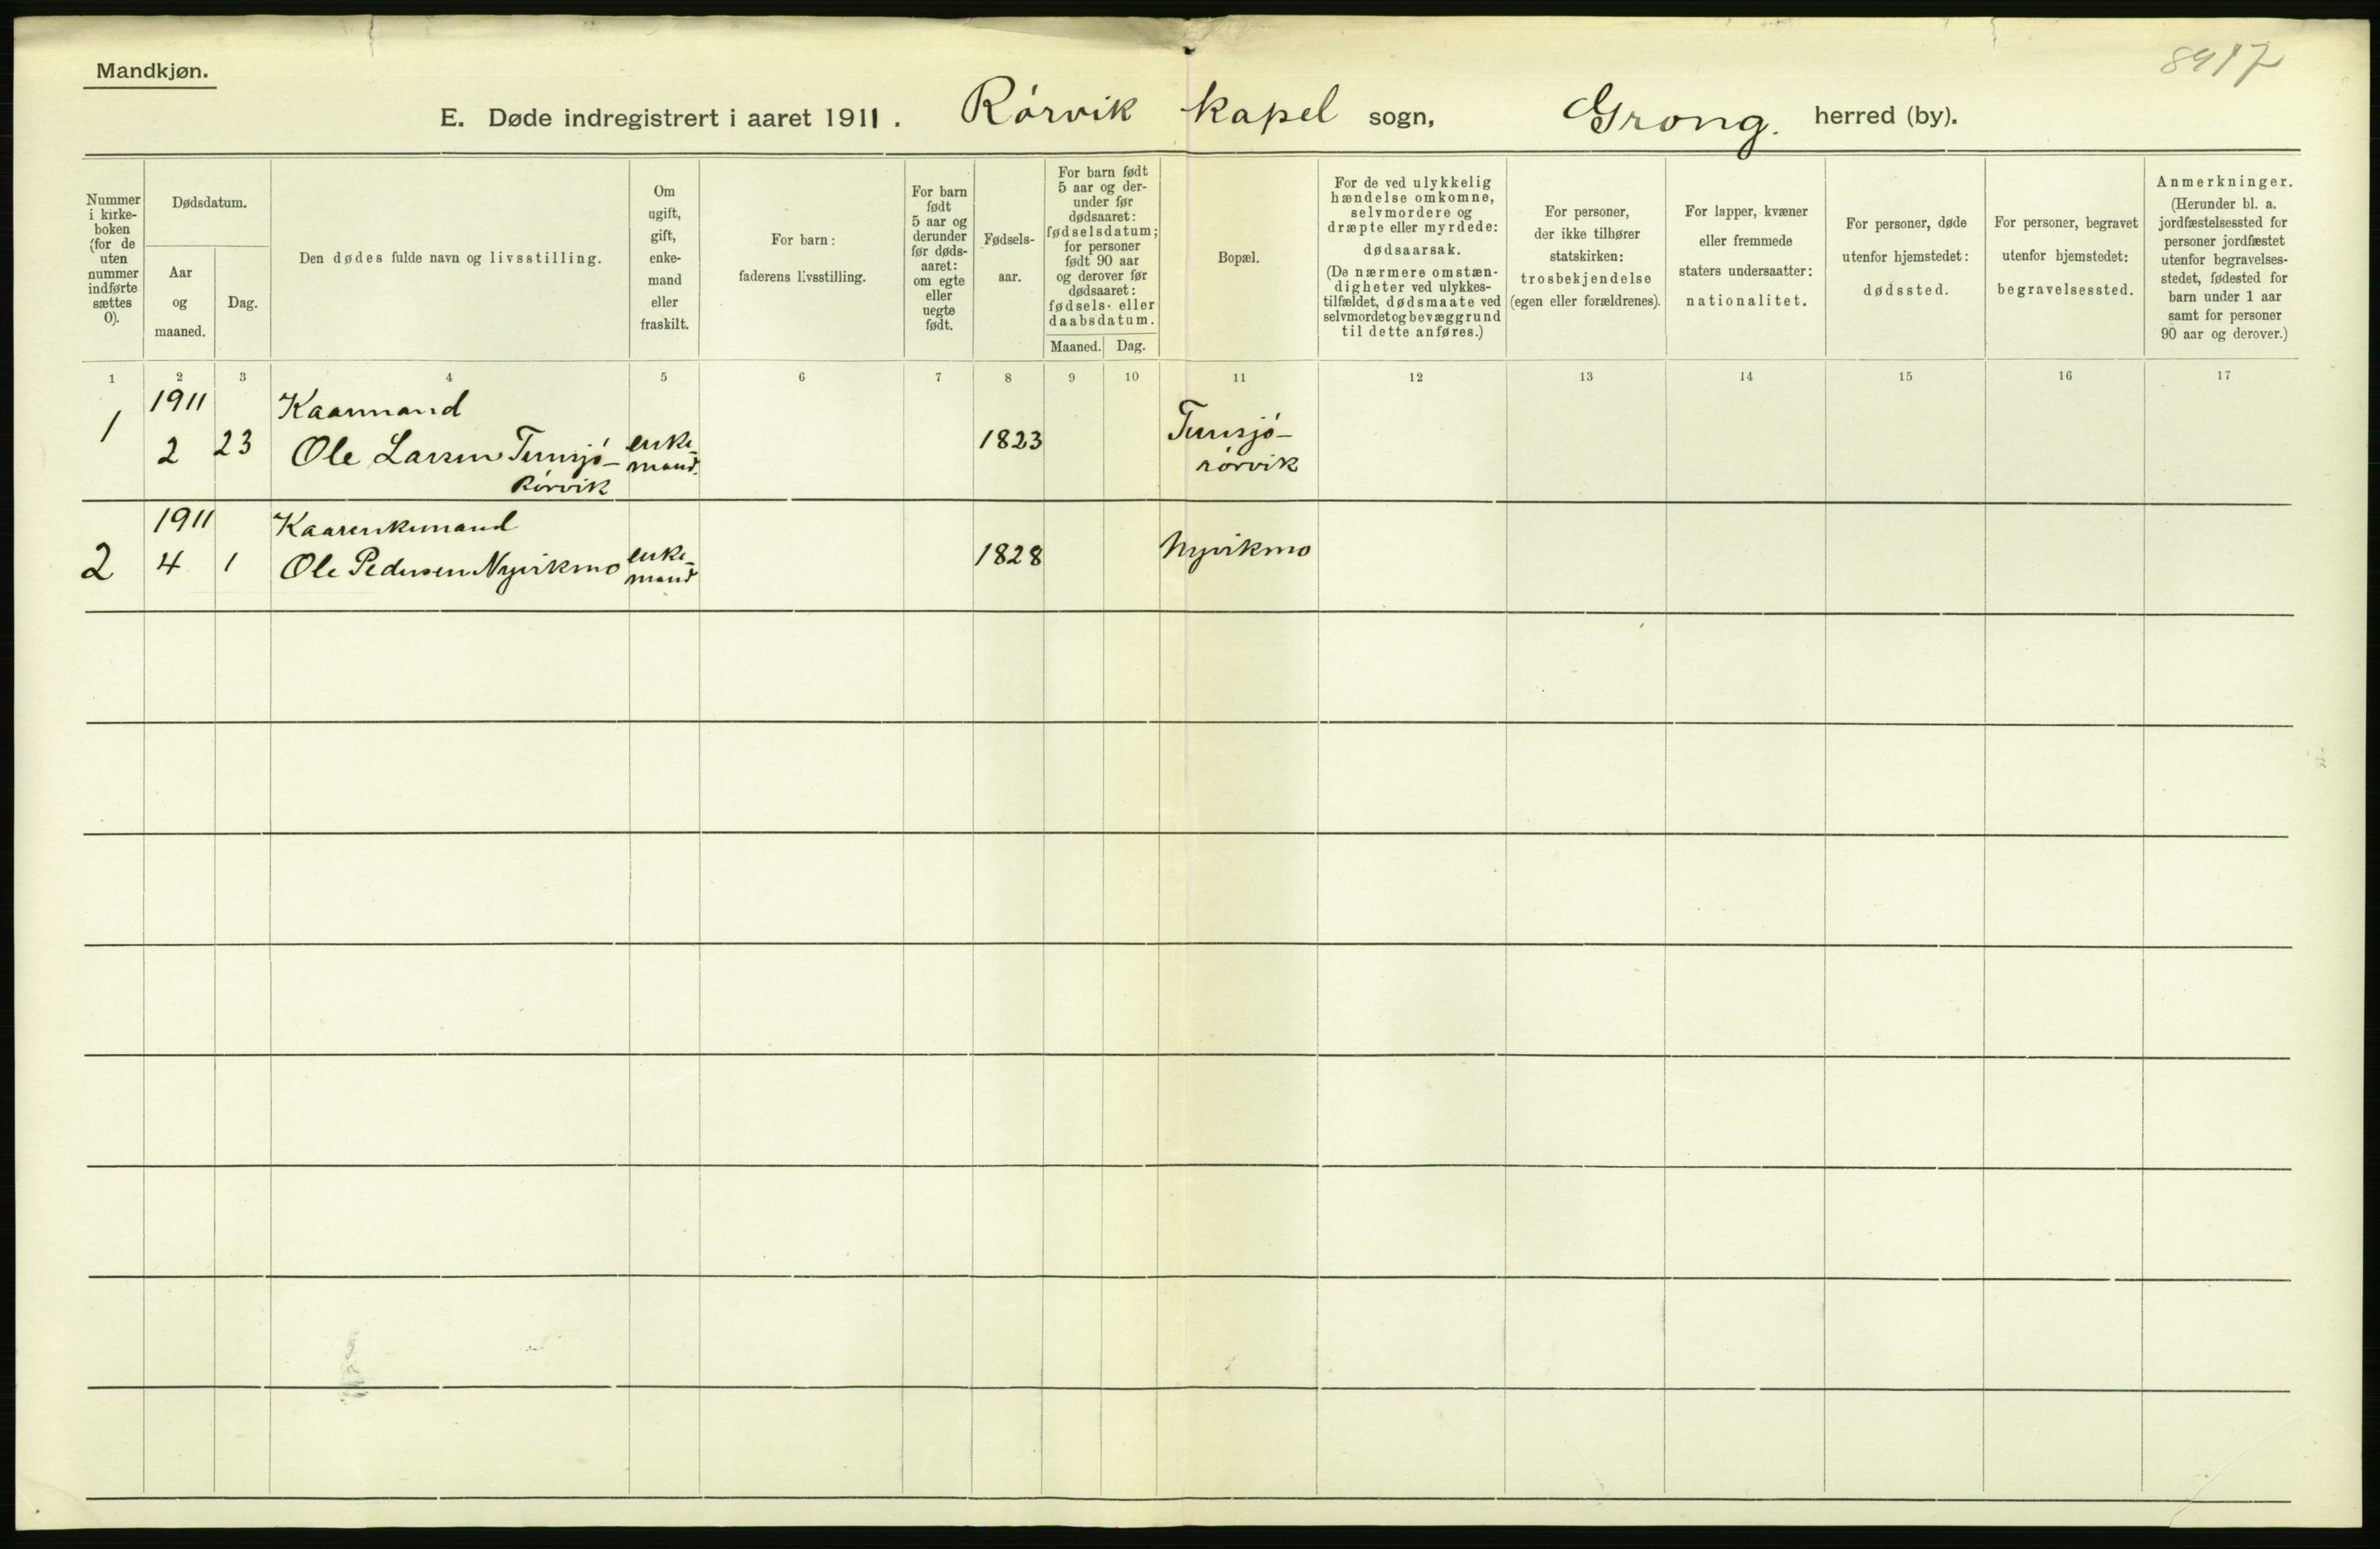 Mandkjøn.
8917
E. Døde indregistrert i aaret 1911. Rørvik kapel sogn, Grong. herred (by).
Nummer i kirke-boken (for de uten nummer indførte sættes 0).
Dødsdatum.
Aar og maaned.
Dag.
Den dødes fulde navn og livsstilling.
Om ugift, gift, enke-mand eller fraskilt.
For barn: faderens livsstilling.
For barn født 5 aar og derunder før døds-aaret: om egte eller uegte født.
Fødsels-aar.
For barn født 5 aar og der-under før dødsaaret: fødselsdatum; for personer født 90 aar og derover før dødsaaret: fødsels- eller daabsdatum.
Maaned. Dag.
Bopæl.
For de ved ulykkelig hændelse omkomne, selvmordere og dræpte eller myrdede: dødsaarsak. (De nærmere omstæn-digheter ved ulykkes-tilfældet, dødsmaate ved selvmordet og bevæggrund til dette anføres.)
For personer, der ikke tilhører statskirken: trosbekjendelse (egen eller forældrenes).
For lapper, kvæner eller fremmede staters undersaatter: nationalitet.
For personer, døde utenfor hjemstedet: dødssted.
For personer, begravet utenfor hjemstedet: begravelsessted.
Anmerkninger. (Herunder bl. a. jordfæstelsessted for personer jordfæstet utenfor begravelses-stedet, fødested for barn under 1 aar samt for personer 90 aar og derover.)
1 2 3 4 5 6 7 8 9 10 11 12 13 14 15 16 17
1911 Kaarmand
1 2 23 Ole Larsen Tunsjø- enke- 1823 Tunsjø-
Rørvik mand. rørvik
1911 Kaarenkemand
2 4 1 Ole Pedersen Nyvikmo enke- 1828 Nyvikmo
mand